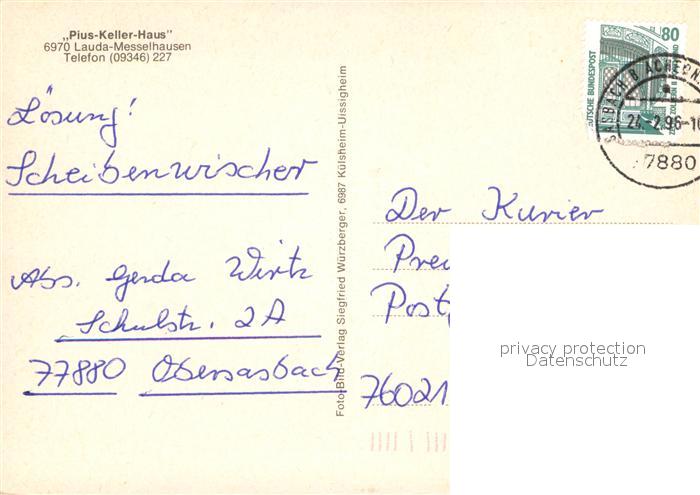 „Pius-Keller-Haus"
6970 Lauda-Messelhausen
Telefon (09346) 227
Lösung!
Scheibenwischer
Abs. Gerda Wirtz
Schulstr. 2A
77880 Obersasbach
Foto Bild-Verlag Siegfried Würzberger, 6987 Külsheim-Uissigheim
80
DEUTSCHE BUNDESPOST
SASBACH B ACHERN
24.-2.96-10
77880
Der Kurier
Postf
76021
privacy protection
Datenschutz